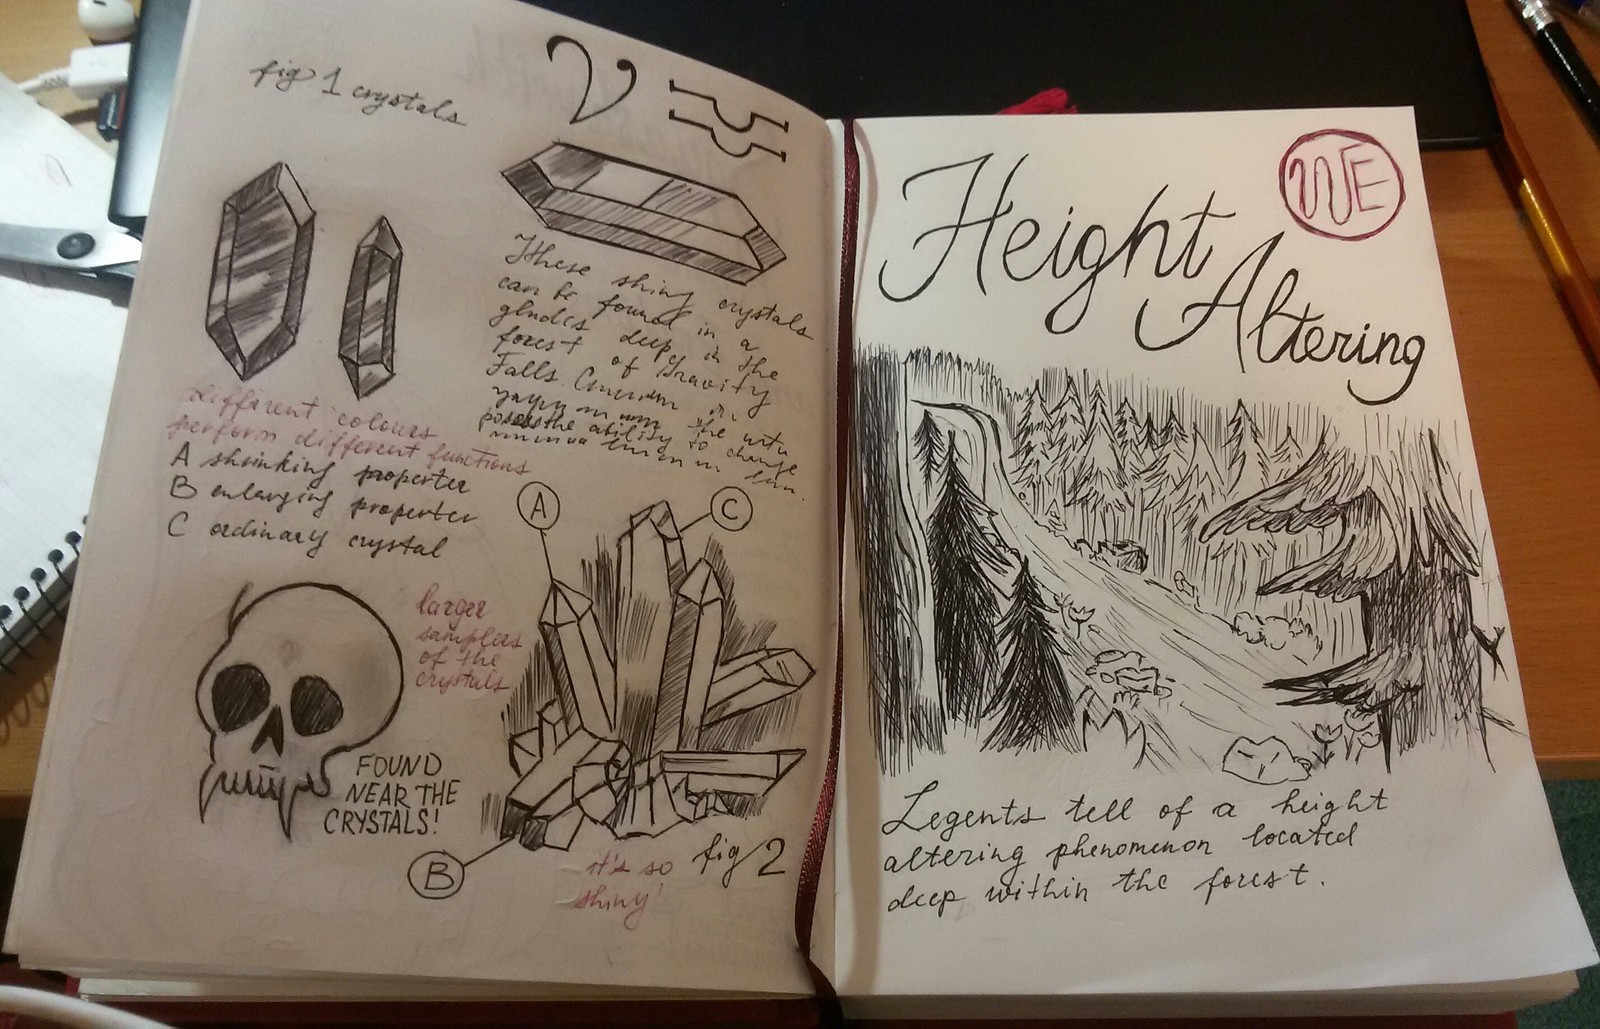 fig 1 crystals
These shiny crystals
can be found in a
glades deep in the
forest of Gravity
Falls.
the
posses the ability to change
different colours
perform different functions
A shrinking properter
B enlarging properter
C ordinary crystal
A
C
larger
samplers
of the
crystals
FOUND
NEAR THE
CRYSTALS!
B
fig 2
it's so
shiny!
Height
Altering
Legents tell of a height
altering phenomenon located
deep within the forest.